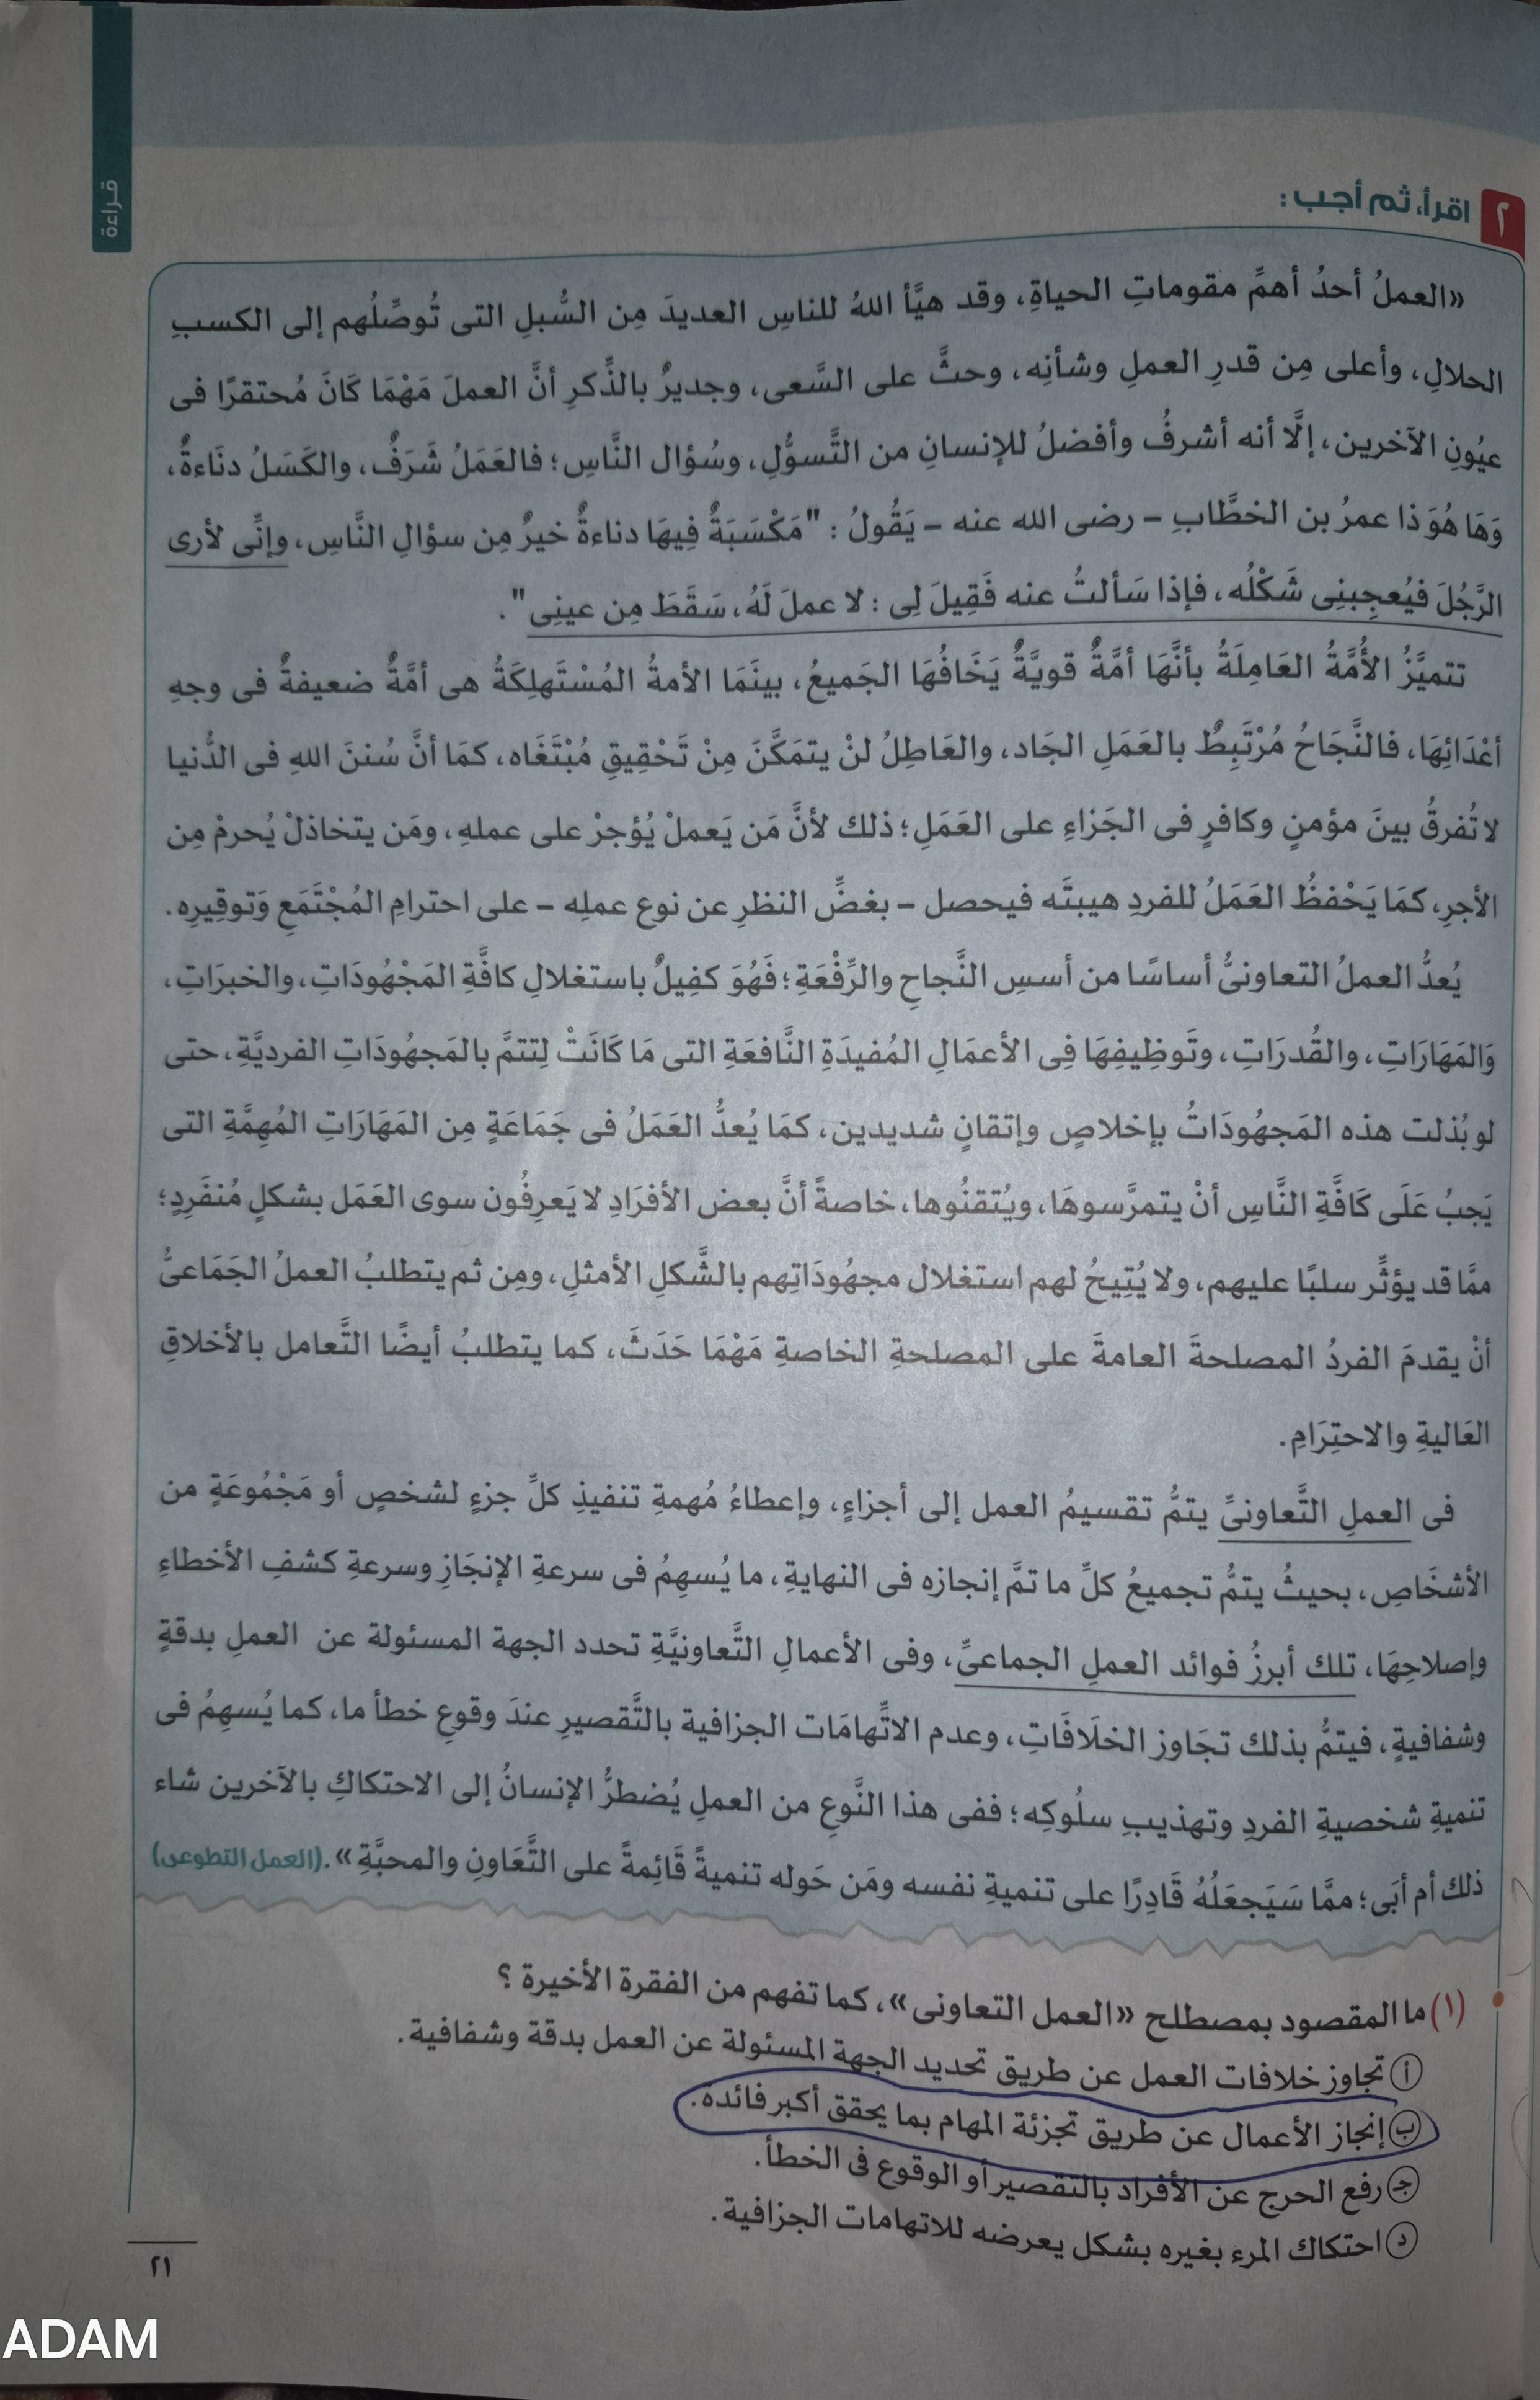 قراءة
٢ اقرأ، ثم أجب :
«العملُ أحدُ أهمِّ مقوماتِ الحياةِ، وقد هيَّأ اللهُ للناسِ العديدَ مِن السُّبلِ التى تُوصِّلُهم إلى الكسبِ
الحلالِ، وأعلى مِن قدرِ العملِ وشأنِه، وحثَّ على السَّعى، وجديرٌ بالذِّكرِ أنَّ العملَ مَهْمَا كَانَ مُحتقرًا فى
عيُونِ الآخرين، إلَّا أنه أشرفُ وأفضلُ للإنسانِ من التَّسوُّلِ، وسُؤال النَّاسِ؛ فالعَمَلُ شَرَفٌ، والكَسَلُ دنَاءةٌ،
وَهَا هُوَ ذا عمرُ بن الخطَّابِ – رضى الله عنه – يَقُولُ : "مَكْسَبَةٌ فِيهَا دناءةٌ خيرٌ مِن سؤالِ النَّاسِ، وإنِّى لأرى
الرَّجُلَ فيُعجِبنِى شَكْلُه، فإذا سَألتُ عنه فَقِيلَ لِى : لا عملَ لَهُ، سَقَطَ مِن عينِى".
تتميَّزُ الأُمَّةُ العَامِلَةُ بأنَّهَا أمَّةٌ قويَّةٌ يَخَافُهَا الجَميعُ، بينَمَا الأمةُ المُسْتَهلِكَةُ هى أمَّةٌ ضعيفةٌ فى وجهِ
أعْدَائِهَا، فالنَّجَاحُ مُرْتَبِطٌ بالعَمَلِ الجَاد، والعَاطِلُ لنْ يتمَكَّنَ مِنْ تَحْقِيقِ مُبْتَغَاه، كمَا أنَّ سُننَ اللهِ فى الدُّنيا
لا تُفرقُ بينَ مؤمنٍ وكافرٍ فى الجَزاءِ على العَمَلِ؛ ذلك لأنَّ مَن يَعملْ يُؤجرْ على عملهِ، ومَن يتخاذلْ يُحرمْ مِن
الأجرِ، كمَا يَحْفظُ العَمَلُ للفردِ هيبتَه فيحصل – بغضِّ النظرِ عن نوعِ عملِه – على احترامِ المُجْتَمَعِ وَتوقِيرِه.
يُعدُّ العملُ التعاونىُّ أساسًا من أسسِ النَّجاحِ والرِّفْعَةِ؛ فَهُوَ كفِيلٌ باستغلالِ كافَّةِ المَجْهُودَاتِ، والخبرَاتِ،
وَالمَهَارَاتِ، والقُدرَاتِ، وتَوظِيفِهَا فِى الأعمَالِ المُفيدَةِ النَّافعَةِ التى مَا كَانَتْ لِتتمَّ بالمَجهُودَاتِ الفرديَّةِ، حتى
لو بُذلت هذه المَجهُودَاتُ بإخلاصٍ وإتقانٍ شديدين، كمَا يُعدُّ العَمَلُ فى جَمَاعَةٍ مِن المَهَارَاتِ المُهِمَّةِ التى
يَجبُ عَلَى كَافَّةِ النَّاسِ أنْ يتمرَّسوهَا، ويُتقنُوها، خاصةً أنَّ بعض الأفرَادِ لا يَعرِفُون سوى العَمَل بشكلٍ مُنفَرِدٍ؛
ممَّا قد يؤثِّر سلبًا عليهم، ولا يُتِيحُ لهم استغلال مجهُودَاتِهم بالشَّكلِ الأمثلِ، ومِن ثم يتطلبُ العملُ الجَمَاعىُّ
أنْ يقدمَ الفردُ المصلحةَ العامةَ على المصلحةِ الخاصةِ مَهْمَا حَدَثَ، كما يتطلبُ أيضًا التَّعامل بالأخلاقِ
العَاليةِ والاحتِرَامِ.
فى العملِ التَّعاونىِّ يتمُّ تقسيمُ العمل إلى أجزاءٍ، وإعطاءُ مُهمةِ تنفيذِ كلِّ جزءٍ لشخصٍ أو مَجْمُوعَةٍ من
الأشخَاصِ، بحيثُ يتمُّ تجميعُ كلِّ ما تمَّ إنجازه فى النهايةِ، ما يُسهِمُ فى سرعةِ الإنجَازِ وسرعةِ كشفِ الأخطاءِ
وإصلاحِهَا، تلك أبرزُ فوائد العملِ الجماعىِّ، وفى الأعمالِ التَّعاونيَّةِ تحدد الجهة المسئولة عن العملِ بدقةٍ
وشفافيةٍ، فيتمُّ بذلك تجَاوز الخلَافَاتِ، وعدم الاتِّهامَات الجزافية بالتَّقصيرِ عندَ وقوعِ خطأ ما، كما يُسهِمُ فى
تنميةِ شخصيةِ الفردِ وتهذيبِ سلُوكِه؛ ففى هذا النَّوعِ من العملِ يُضطرُّ الإنسانُ إلى الاحتكاكِ بالآخرين شاء
ذلك أم أبَى؛ ممَّا سَيَجعَلُهُ قَادِرًا على تنميةِ نفسه ومَن حَوله تنميةً قَائِمةً على التَّعَاونِ والمحبَّةِ». (العمل التطوعى)
(١) ما المقصود بمصطلح «العمل التعاونى»، كما تفهم من الفقرة الأخيرة ؟
أ تجاوز خلافات العمل عن طريق تحديد الجهة المسئولة عن العمل بدقة وشفافية.
ب إنجاز الأعمال عن طريق تجزئة المهام بما يحقق أكبر فائدة.
ج رفع الحرج عن الأفراد بالتقصير أو الوقوع فى الخطأ.
د احتكاك المرء بغيره بشكل يعرضه للاتهامات الجزافية.
٢١
ADAM